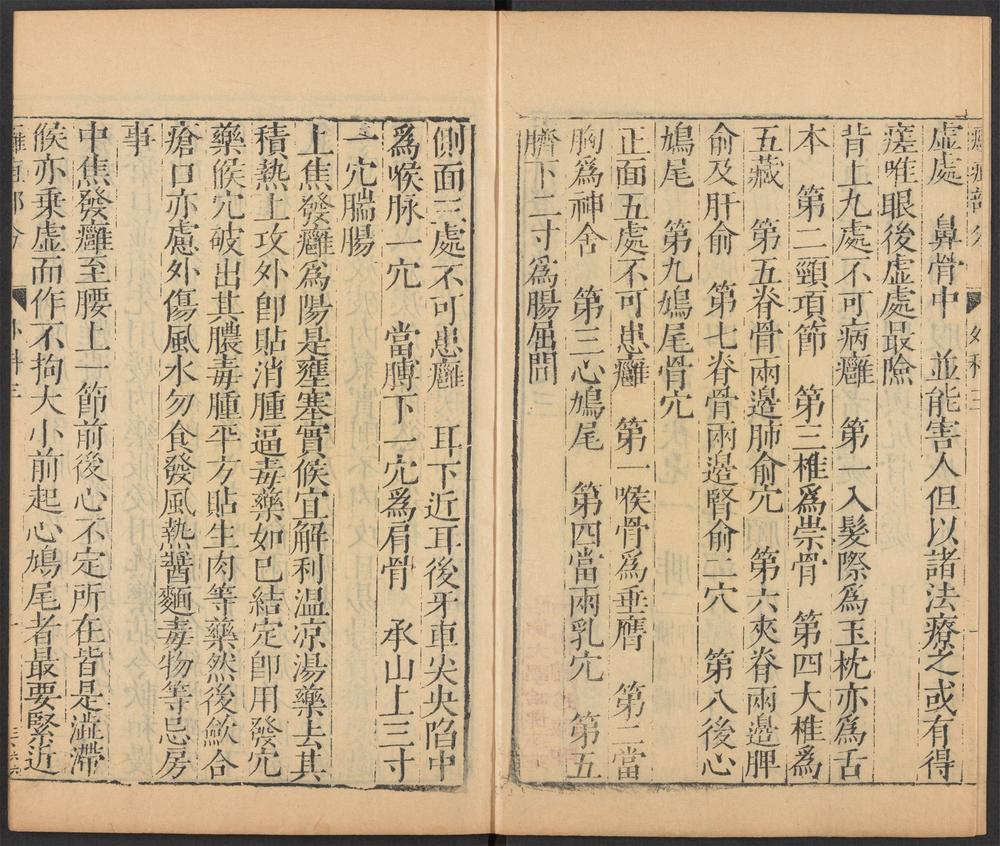 虛處　鼻骨中　並能害人但以諸法療之或有得
瘥唯眼後虛處最險
背上九處不可病癰　第一入髮際爲玉枕亦爲古
本　第二頸項節　第三椎爲崇骨　第四大椎爲
五藏　第五脊骨兩邊肺俞穴　第六夾脊兩邊脾
俞及肝俞　第七脊骨兩邊腎俞二穴　第八後心
鳩尾　第九鳩尾骨穴
正面五處不可患癰　第一喉骨爲垂膺　第二當
胸爲神舍　第三心鳩尾　第四當兩乳穴　第五
臍下二寸爲腸屈間
側面三處不可患癰　耳下近耳後牙車尖央陷中
爲喉脉一穴　當膊下一穴爲肩骨　承山上三寸
一穴腨腸
上焦發癰爲陽是壅塞實候宜解利温凉湯藥去其
積熱上攻外卽貼消腫逼毒藥如已結定卽用發穴
藥候穴破出其膿毒腫平方貼生肉等藥然後歛合
瘡口亦慮外傷風水勿食發風熱醬麵毒物等忌房
事
中焦發癰至腰上一節前後心不定所在皆是澁滯
候亦乘虛而作不拘大小前起心鳩尾者最要緊近
外科三